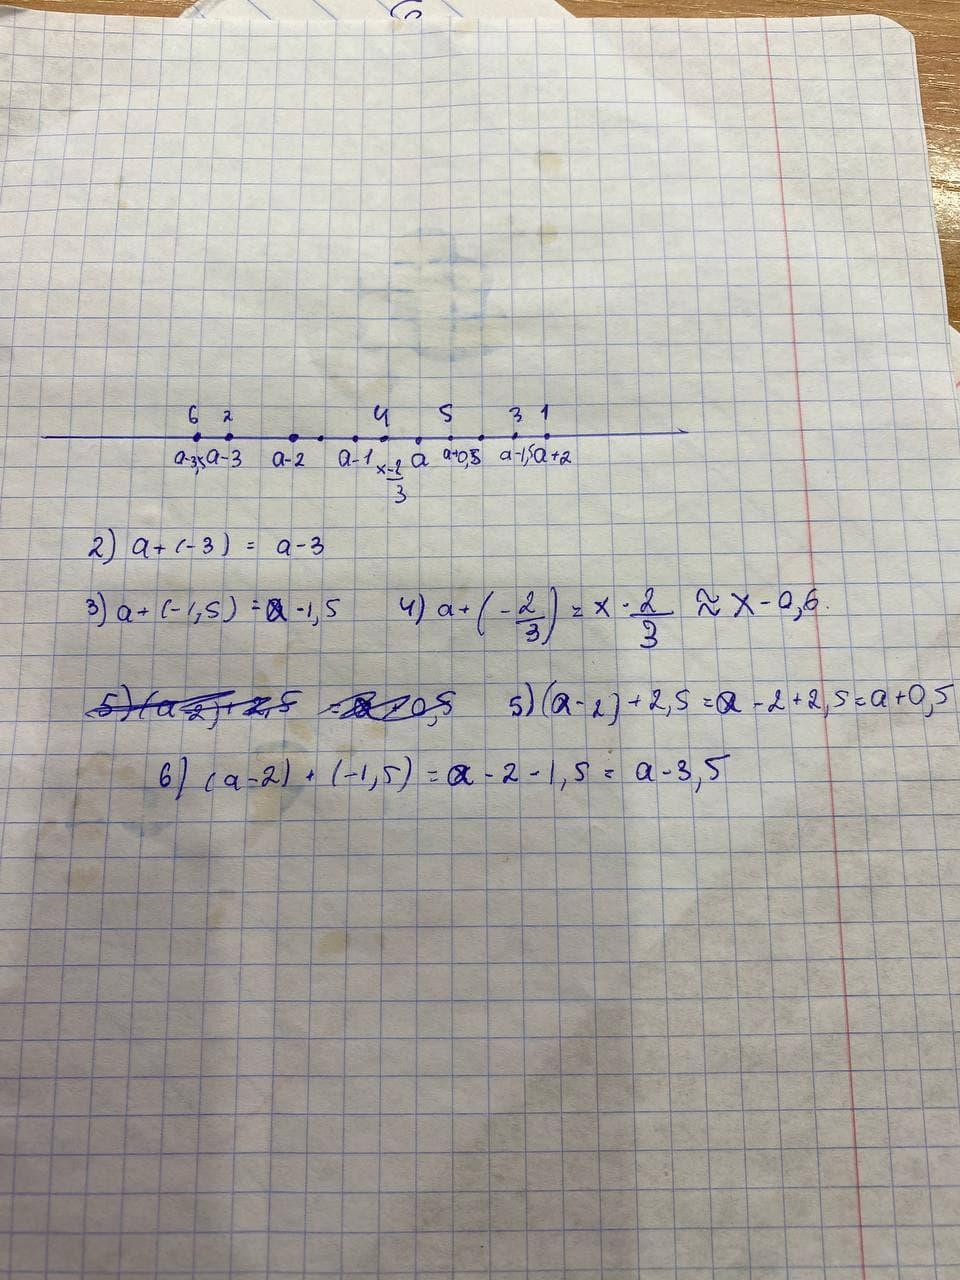 6 2 4 5 3 1
a-3,5 a-3 a-2 a-1 x-2/3 a a+0,5 a-1,5 a+2
2) a+(-3) = a-3
3) a+(-1,5) = a-1,5 4) a+(-2/3) = x-2/3 ≈ x-0,6.
5) (a-2)+2,5 = a+0,5 5) (a-2)+2,5 = a-2+2,5 = a+0,5
6) (a-2)+(-1,5) = a-2-1,5 = a-3,5